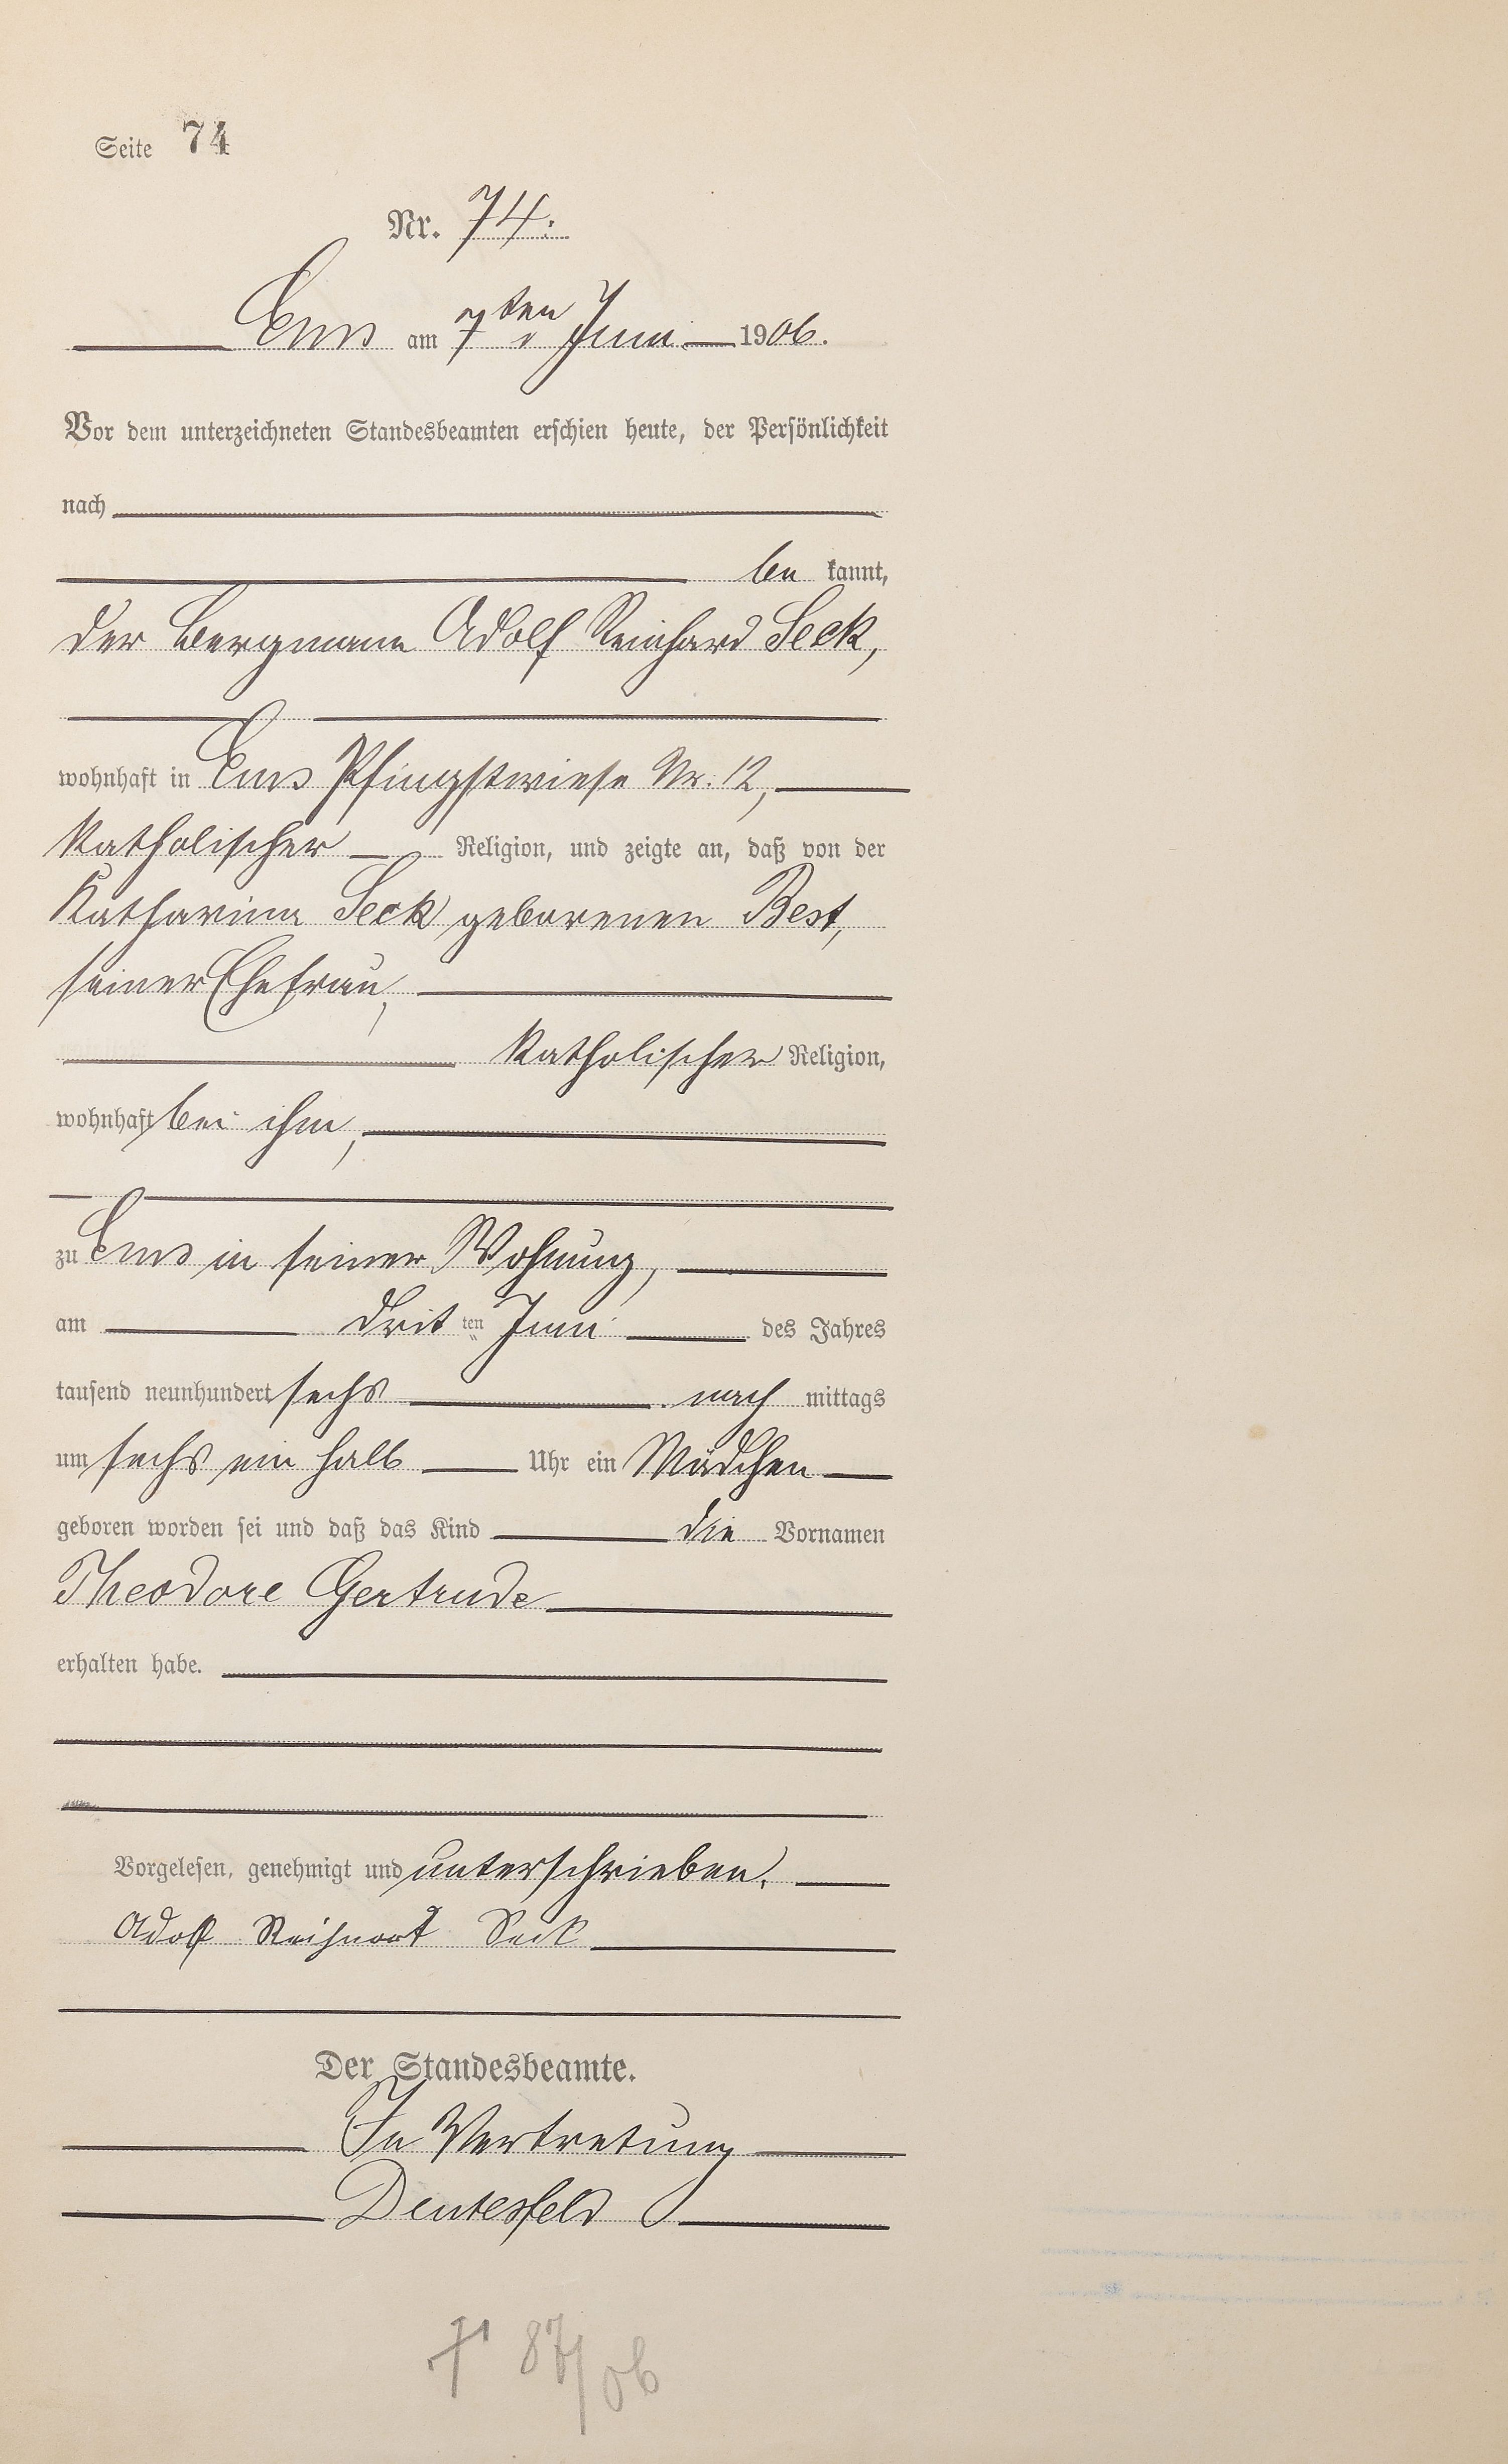 Seite 74
Nr. 74.
Ems am 7ten Juni 1906.
Vor dem unterzeichneten Standesbeamten erschien heute, der Persönlichkeit
nach
be kannt,
der Bergmann Adolf Reinhard Seck,
wohnhaft in Ems Pfingstwiese Nr. 12,
katholischer Religion, und zeigte an, daß von der
Katharina Seck geborenen Best,
seiner Ehefrau,
katholischer Religion,
wohnhaft bei ihm,
zu Ems in seiner Wohnung,
am drit ten Juni des Jahres
tausend neunhundert sechs nach mittags
um sechs ein halb Uhr ein Mädchen
geboren worden sei und daß das Kind die Vornamen
Theodore Gertrude
erhalten habe.
Vorgelesen, genehmigt und unterschrieben.
Adolf Reihnart Seck
Der Standesbeamte.
In Vertretung
Deutesfeld
† 87/06